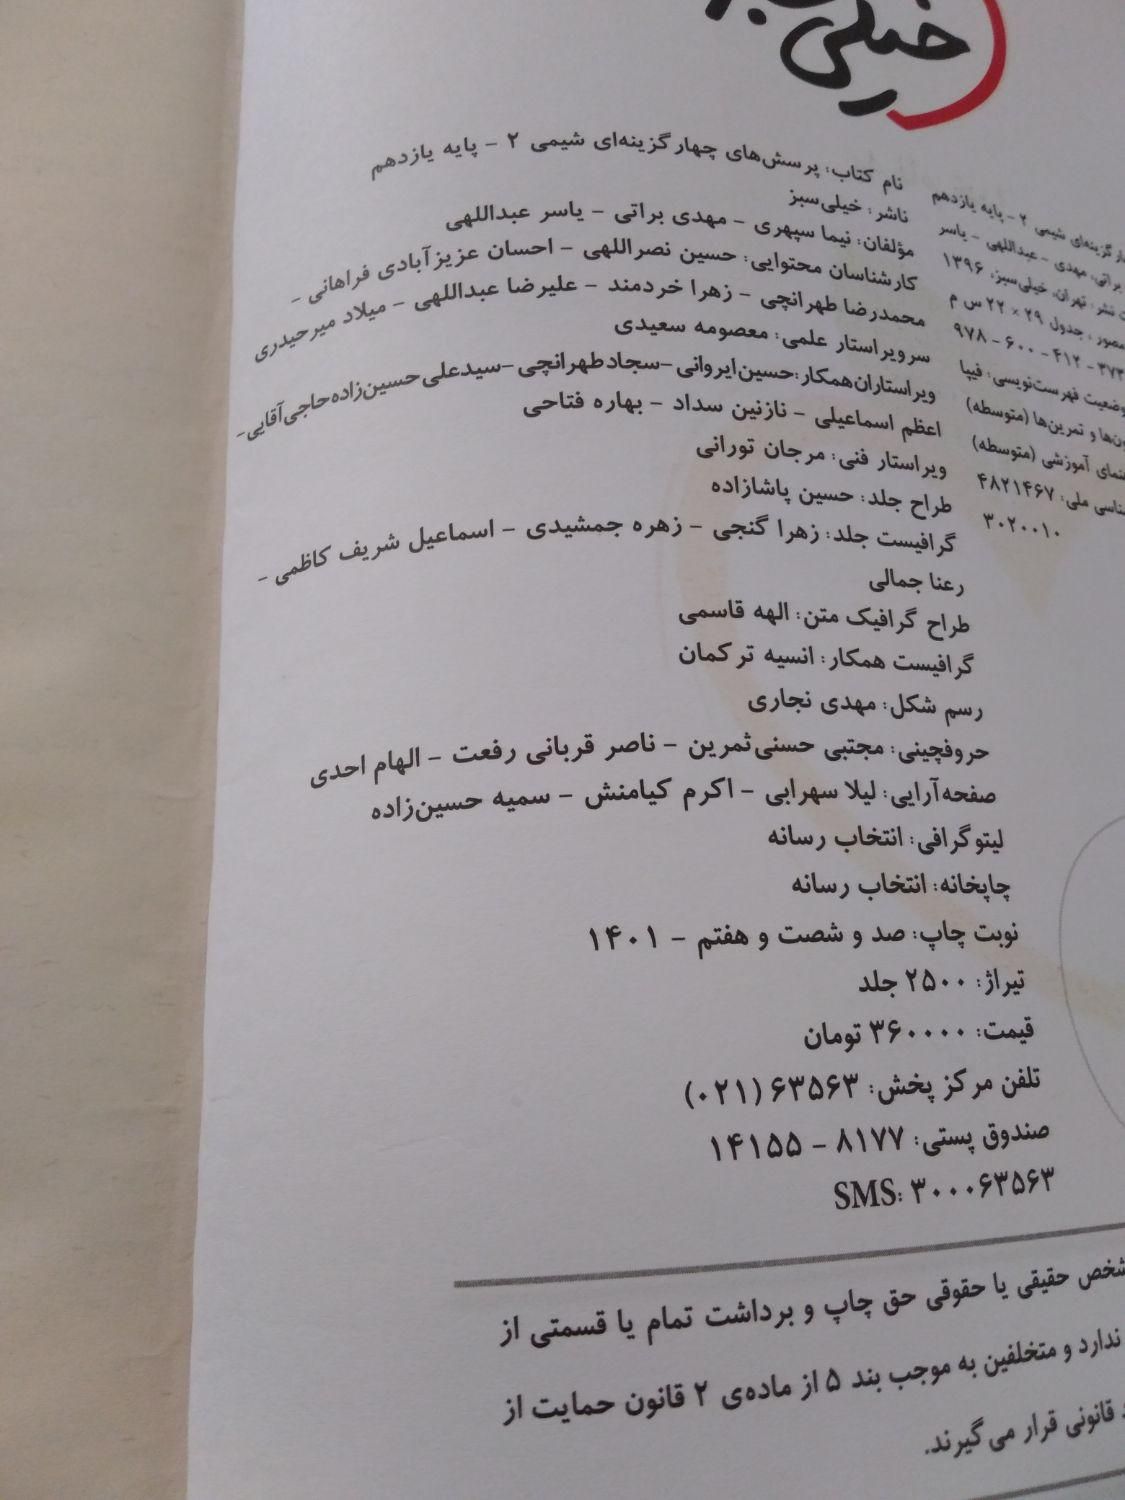 خیلی
نام کتاب: پرسش‌های چهارگزینه‌ای شیمی ۲ – پایه یازدهم
ناشر: خیلی‌سبز
مؤلفان: نیما سپهری – مهدی براتی – یاسر عبداللهی
کارشناسان محتوایی: حسین نصراللهی – احسان عزیزآبادی فراهانی –
محمدرضا طهرانچی – زهرا خردمند – علیرضا عبداللهی – میلاد میرحیدری
سرویراستار علمی: معصومه سعیدی
ویراستاران‌همکار:حسین‌ایروانی–سجادطهرانچی–سیدعلی‌حسین‌زاده‌حاجی‌آقایی–
اعظم اسماعیلی – نازنین سداد – بهاره فتاحی
ویراستار فنی: مرجان تورانی
طراح جلد: حسین پاشازاده
گرافیست جلد: زهرا گنجی – زهره جمشیدی – اسماعیل شریف کاظمی –
رعنا جمالی
طراح گرافیک متن: الهه قاسمی
گرافیست همکار: انسیه ترکمان
رسم شکل: مهدی نجاری
حروفچینی: مجتبی حسنی‌ثمرین – ناصر قربانی رفعت – الهام احدی
صفحه‌آرایی: لیلا سهرابی – اکرم کیامنش – سمیه حسین‌زاده
لیتوگرافی: انتخاب رسانه
چاپخانه: انتخاب رسانه
نوبت چاپ: صد و شصت و هفتم – ۱۴۰۱
تیراژ: ۲۵۰۰ جلد
قیمت: ۳۶۰۰۰۰ تومان
تلفن مرکز پخش: ۶۳۵۶۳ (۰۲۱)
صندوق پستی: ۸۱۷۷ – ۱۴۱۵۵
SMS: ۳۰۰۰۶۳۵۶۳
گزینه‌ای شیمی ۲ – پایه یازدهم
براتی، مهدی – عبداللهی – یاسر
نشر: تهران، خیلی‌سبز، ۱۳۹۶
مصور، جدول ۲۹ × ۲۲ س م
۹۷۸ – ۶۰۰ – ۴۱۲ – ۳۷۳
وضعیت فهرست‌نویسی: فیپا
و تمرین‌ها (متوسطه)
آموزشی (متوسطه)
ملی: ۴۸۲۱۴۶۷
۳۰۲۰۰۱۰
شخص حقیقی یا حقوقی حق چاپ و برداشت تمام یا قسمتی از
ندارد و متخلفین به موجب بند ۵ از ماده‌ی ۲ قانون حمایت از
قانونی قرار می‌گیرند.